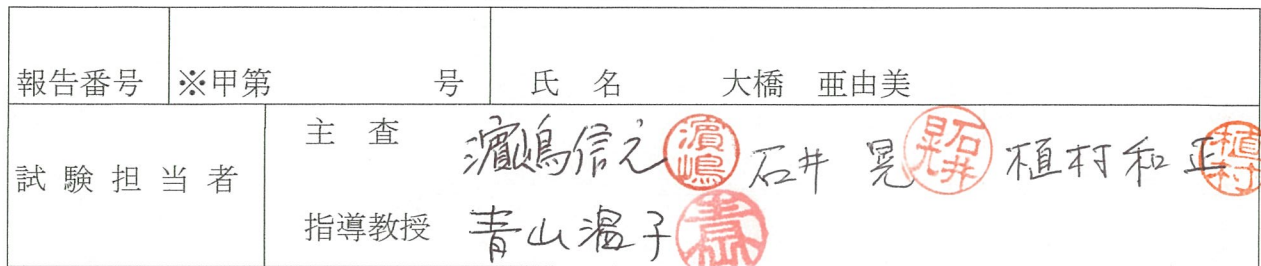 報告番号 ※甲第 号 氏 名 大橋 亜由美
試 験 担 当 者 主 査 濵嶋信之 濵嶋 石井 晃 石井晃 植村和正 植村
指導教授 青山温子 青山